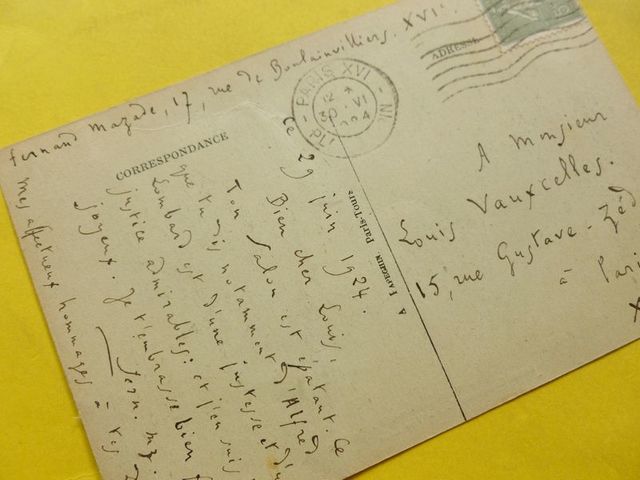 Fernand Mazade, 17, rue de Boulainvilliers. XVIe.
CORRESPONDANCE
ADRESSE
PARIS XVI
12
30 VI
Ce 29 juin 1924.
Bien cher Louis,
Ton salon est épatant. Ce
que tu dis notamment d'Alfred
Lombard est d'une justesse et d'u
justice admirables: et j'en suis
joyeux. Je t'embrasse bien f
Fern. Mz.
Mes affectueux hommages à tes
Paris-Tours
A Monsieur
Louis Vauxcelles.
15, rue Gustave-Zéd
à Pari
X